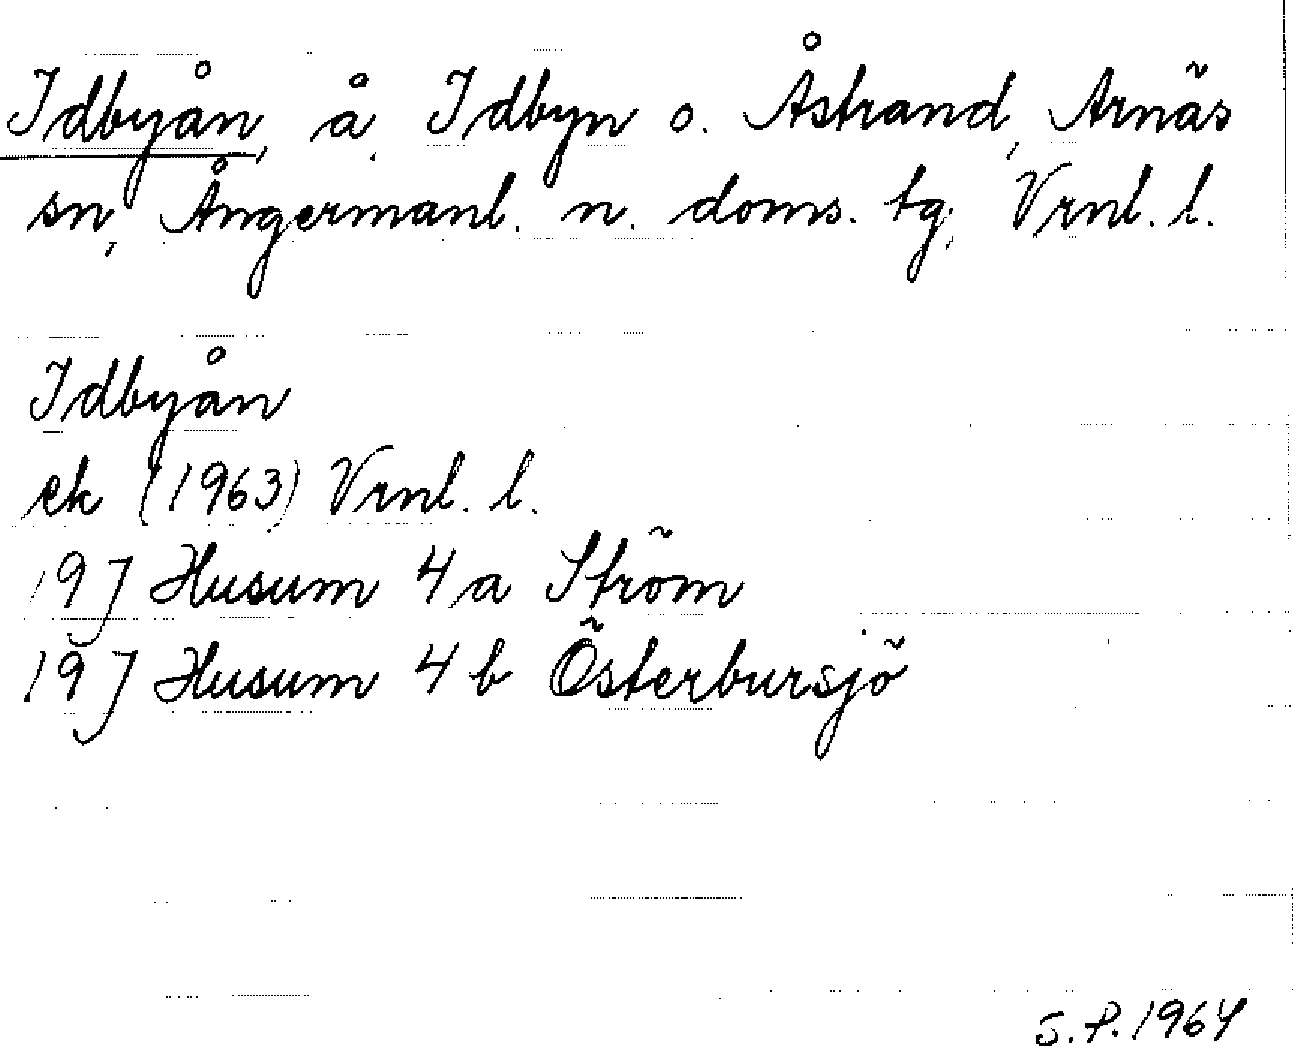 Idbyån, å, Idbyn o. Åstrand, Arnäs
sn, Ångermanl. n. doms. tg, Vrnl. l.
Idbyån
ek (1963) Vrnl. l.
19J Husum 4a Ström
19J Husum 4b Österbursjö
S.P. 1964